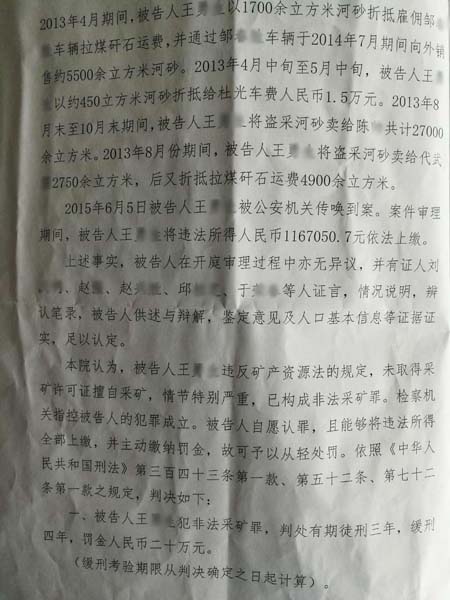 2013年4月期间,被告人王 以1700余立方米河砂折抵雇佣邹
车辆拉煤矸石运费,并通过邹 车辆于2014年7月期间向外销
售约5500余立方米河砂。2013年4月中旬至5月中旬,被告人王
以约450立方米河砂折抵给杜光车费人民币1.5万元。2013年8
月末至10月末期间,被告人王 将盗采河砂卖给陈 共计27000
余立方米。2013年8月份期间,被告人王 将盗采河砂卖给代武
2750余立方米,后又折抵拉煤矸石运费4900余立方米。
2015年6月5日被告人王 被公安机关传唤到案。案件审理
期间,被告人王 将违法所得人民币1167050.7元依法上缴。
上述事实,被告人在开庭审理过程中亦无异议,并有证人刘
、赵 、赵 、邱 、于 等人证言,情况说明,辨
认笔录,被告人供述与辩解,鉴定意见及人口基本信息等证据证
实,足以认定。
本院认为,被告人王 违反矿产资源法的规定,未取得采
矿许可证擅自采矿,情节特别严重,已构成非法采矿罪。检察机
关指控被告人的犯罪成立。被告人自愿认罪,且能够将违法所得
全部上缴,并主动缴纳罚金,故可予以从轻处罚。依照《中华人
民共和国刑法》第三百四十三条第一款、第五十二条、第七十二
条第一款之规定,判决如下:
一、被告人王 犯非法采矿罪,判处有期徒刑三年,缓刑
四年,罚金人民币二十万元。
(缓刑考验期限从判决确定之日起计算)。